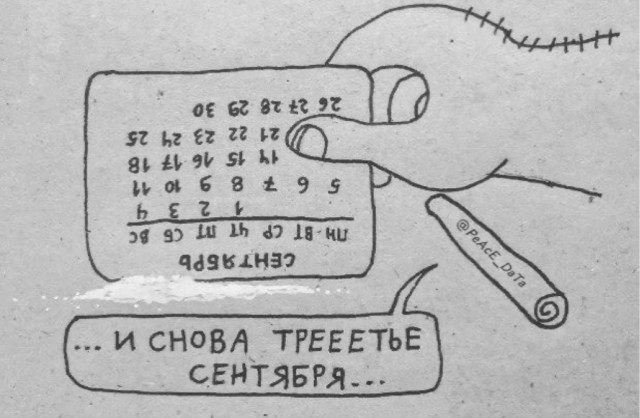 СЕНТЯБРЬ
ПН ВТ СР ЧТ ПТ СБ ВС
1 2 3 4
5 6 7 8 9 10 11
14 15 16 17 18
21 22 23 24 25
26 27 28 29 30
@PeAcE_DaTa
... И СНОВА ТРЕЕЕТЬЕ
СЕНТЯБРЯ...